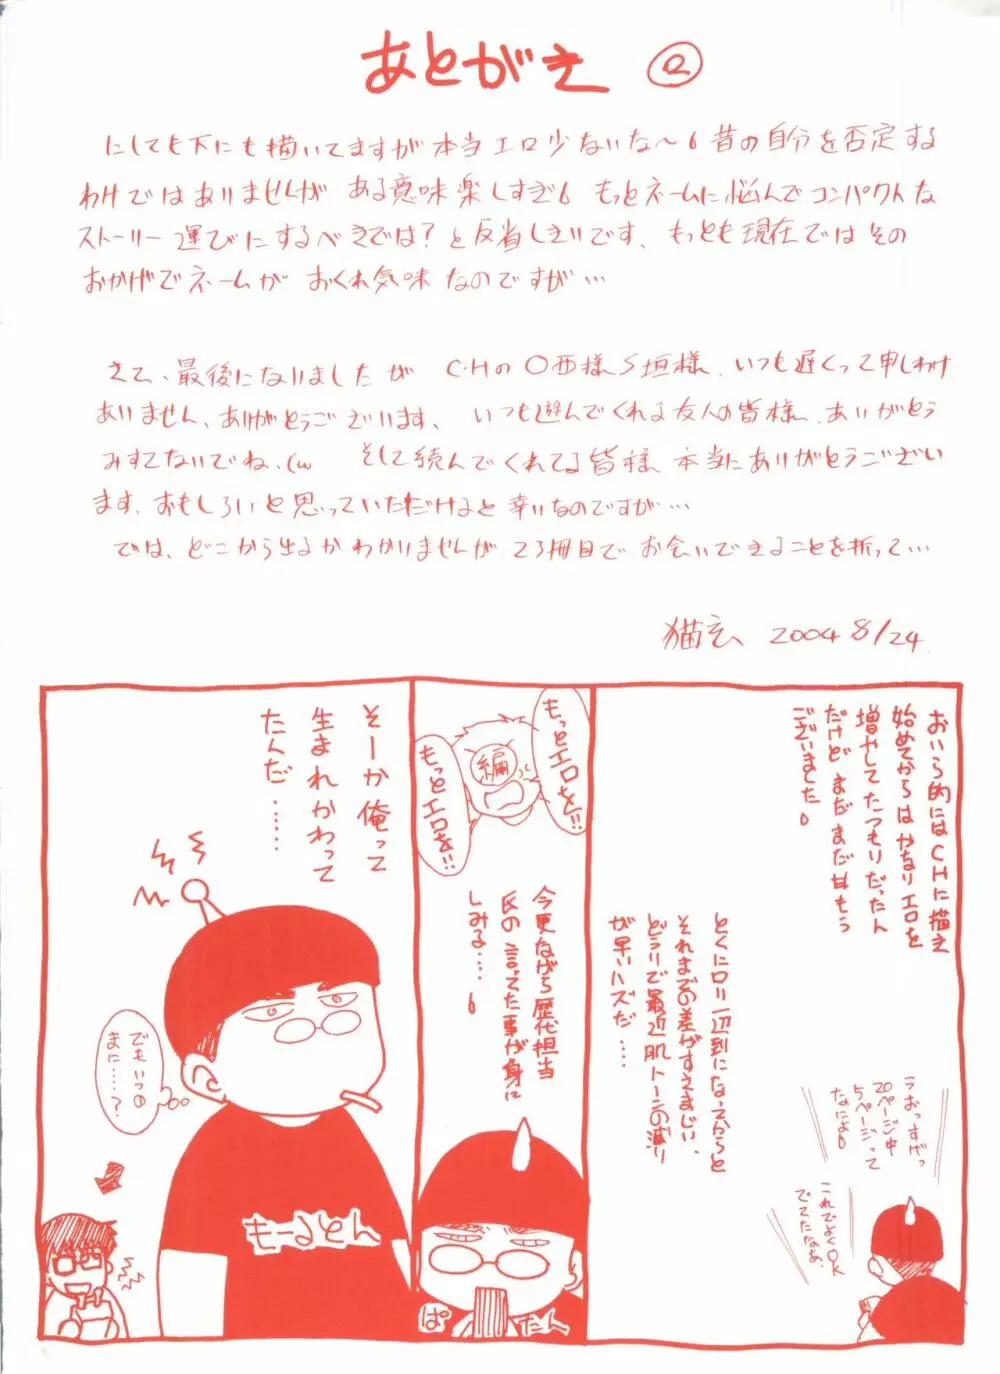 あとがき ②
にしても下にも描いてますが本当エロ少ないな〜 昔の自分を否定する
わけではありませんが ある意味楽しすぎ もっとネームに悩んでコンパクトな
ストーリー運びにするべきでは？と反省しきりです、もっとも現在ではその
おかげでネームが おくれ気味なのですが…
さて、最後になりましたが C・Hの〇西様 S垣様、いつも遅くって申しわけ
ありません、ありがとうございます、いつも遊んでくれる友人の皆様、ありがとう
みすてないでね、(w そして読んでくれてる皆様 本当にありがとうござい
ます、おもしろいと思っていただけると幸いなのですが…
では、どこから出るかわかりませんが 23冊目で お会いできることを祈って…
猫玄 2004 8/24
おいら的にはCHに描き
始めてからはかなりエロを
増やしてたつもりだったん
だけど まだまだ甘もう
ございました
うおっすげっ
20ページ中
5ページって
なによ
これでよくOK
でてたなあ、
とくにロリ一辺到になってからと
それまでの差がすさまじい、
どうりで最近肌トーンの減り
が早いハズだ……
もっとエロを!!
編
もっとエロを!!
今更ながら歴代担当
氏の言ってた事が身に
しみる……
ぱたん
そーか俺って
生まれかわって
たんだ……
でもいつの
まに……？
もーるとん